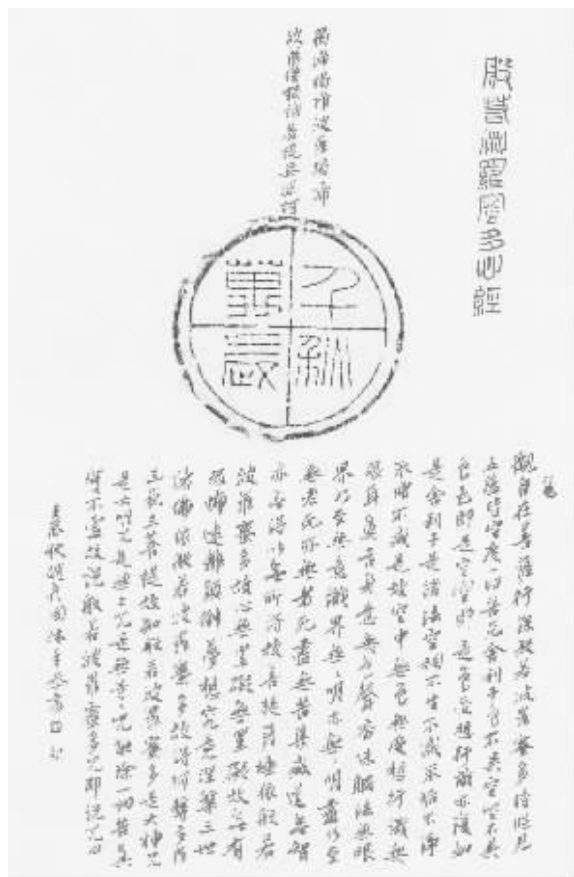 般若波羅蜜多心經
觀自在菩薩行深般若波羅蜜多時照見
五蘊皆空度一切苦厄舍利子色不異空空不異
色色即是空空即是色受想行識亦復如
是舍利子是諸法空相不生不滅不垢不淨
不增不減是故空中無色無受想行識無
眼耳鼻舌身意無色聲香味觸法無眼
界乃至無意識界無無明亦無無明盡乃至
無老死亦無老死盡無苦集滅道無智
亦無得以無所得故菩提薩埵依般若
波羅蜜多故心無罣礙無罣礙故無有
恐怖遠離顛倒夢想究竟涅槃三世
諸佛依般若波羅蜜多故得阿耨多羅
三藐三菩提故知般若波羅蜜多是大神咒
是大明咒是無上咒是無等等咒能除一切苦真
實不虛故說般若波羅蜜多咒即說咒曰
揭諦揭諦波羅揭諦
波羅僧揭諦菩提娑婆訶
千秋
萬歲